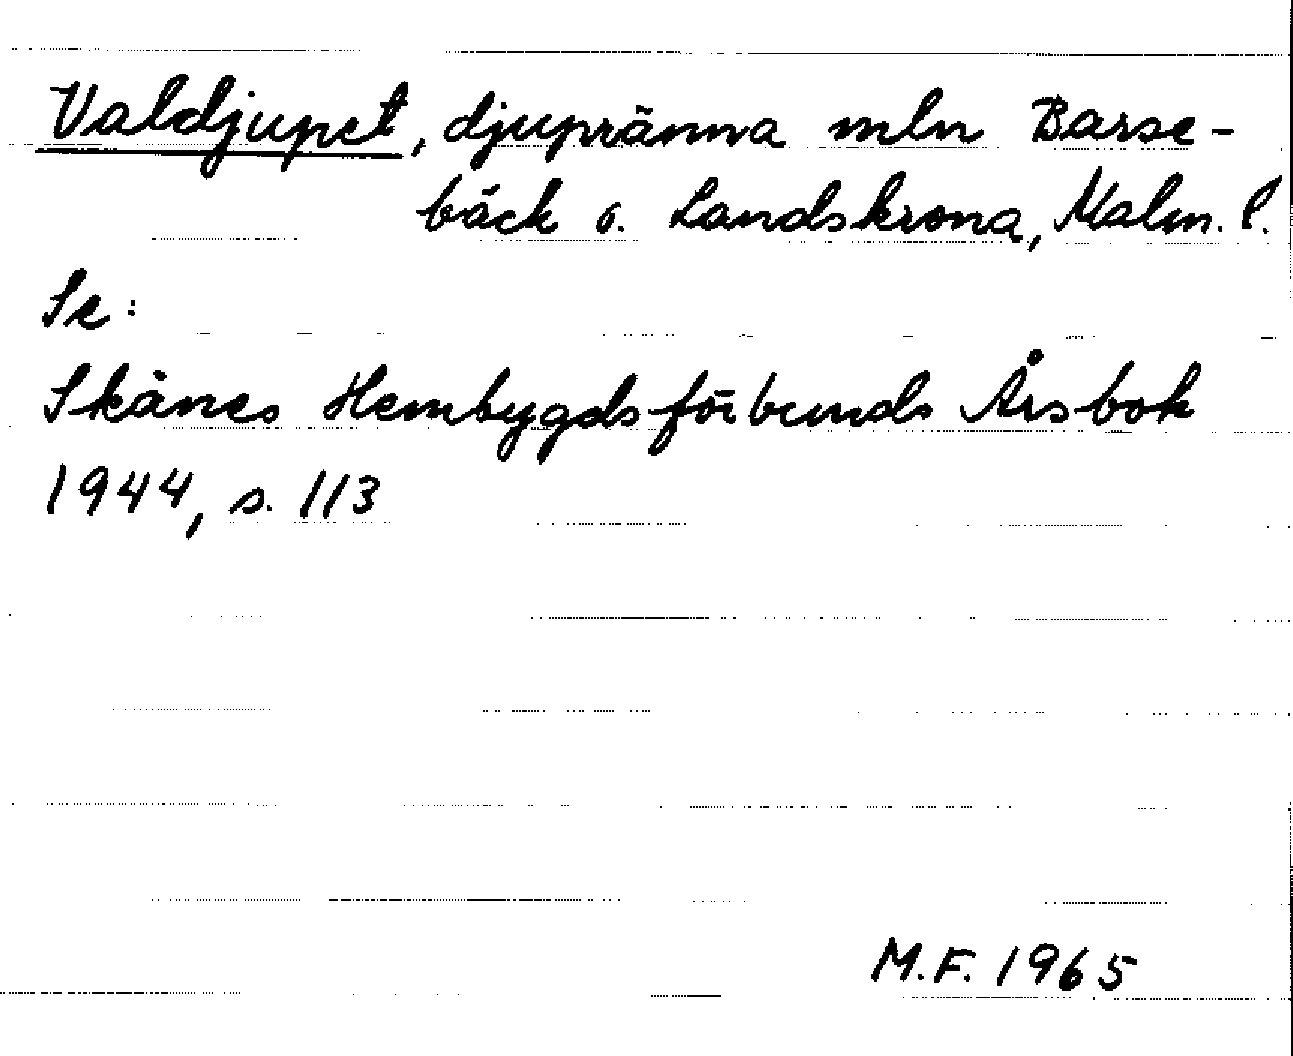 Valdjupet, djupränna mln Barse-
bäck o. Landskrona, Malm. l.
Se:
Skånes Hembygdsförbunds Årsbok
1944, s. 113
M.F. 1965